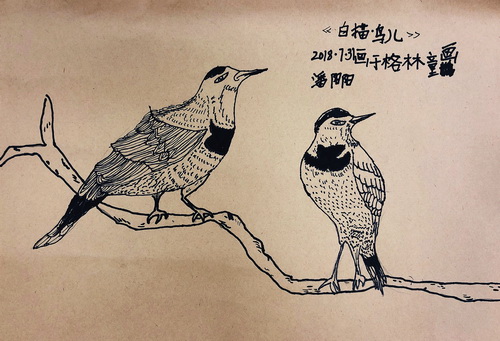 《白描·鸟儿》
2018.7.31画于格林童画
潘阳阳